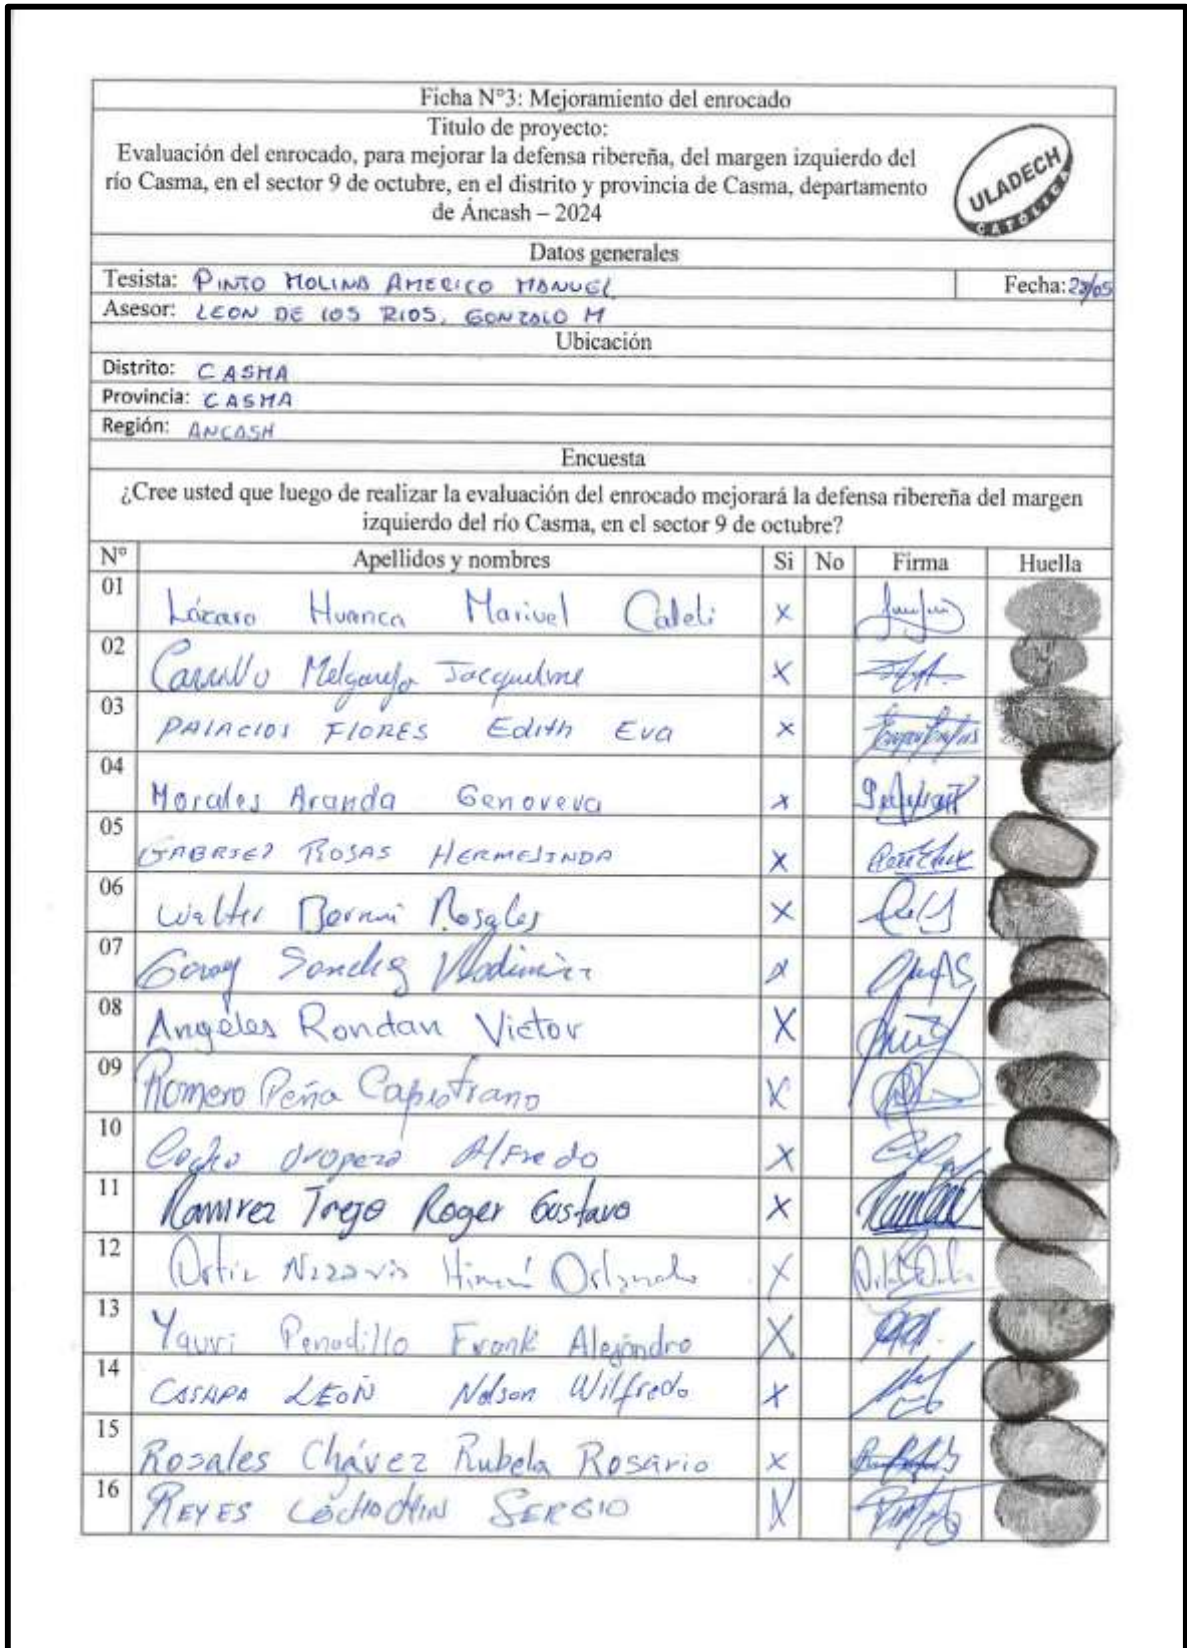 Ficha N°3: Mejoramiento del enrocado
Titulo de proyecto:
Evaluación del enrocado, para mejorar la defensa ribereña, del margen izquierdo del
río Casma, en el sector 9 de octubre, en el distrito y provincia de Casma, departamento
de Áncash – 2024
ULADECH
CATÓLICA
Datos generales
Tesista: PINTO MOLINA AMERICO MANUEL Fecha: /05
Asesor: LEON DE LOS RIOS, GONZALO M
Ubicación
Distrito: CASMA
Provincia: CASMA
Región: ANCASH
Encuesta
¿Cree usted que luego de realizar la evaluación del enrocado mejorará la defensa ribereña del margen
izquierdo del río Casma, en el sector 9 de octubre?
N° Apellidos y nombres Si No Firma Huella
01 Lázaro Huanca Marivel Caleli X
02 Carrillo Melgarejo Jacqueline X
03 PALACIOS FLORES Edith Eva X
04 Morales Aranda Genoveva X
05 GABRIEL ROSAS HERMELINDA X
06 Walter Rosales X
07 Garay Vladimir X
08 Angeles Rondan Victor X
09 Romero Peña Capistrano X
10 Alfredo X
11 Ramirez Trejo Roger Gustavo X
12 Ortiz Orlando X
13 Yauri Penadillo Frank Alejandro X
14 CASAPA LEON Nelson Wilfredo X
15 Rosales Chávez Rubela Rosario X
16 REYES SERGIO X